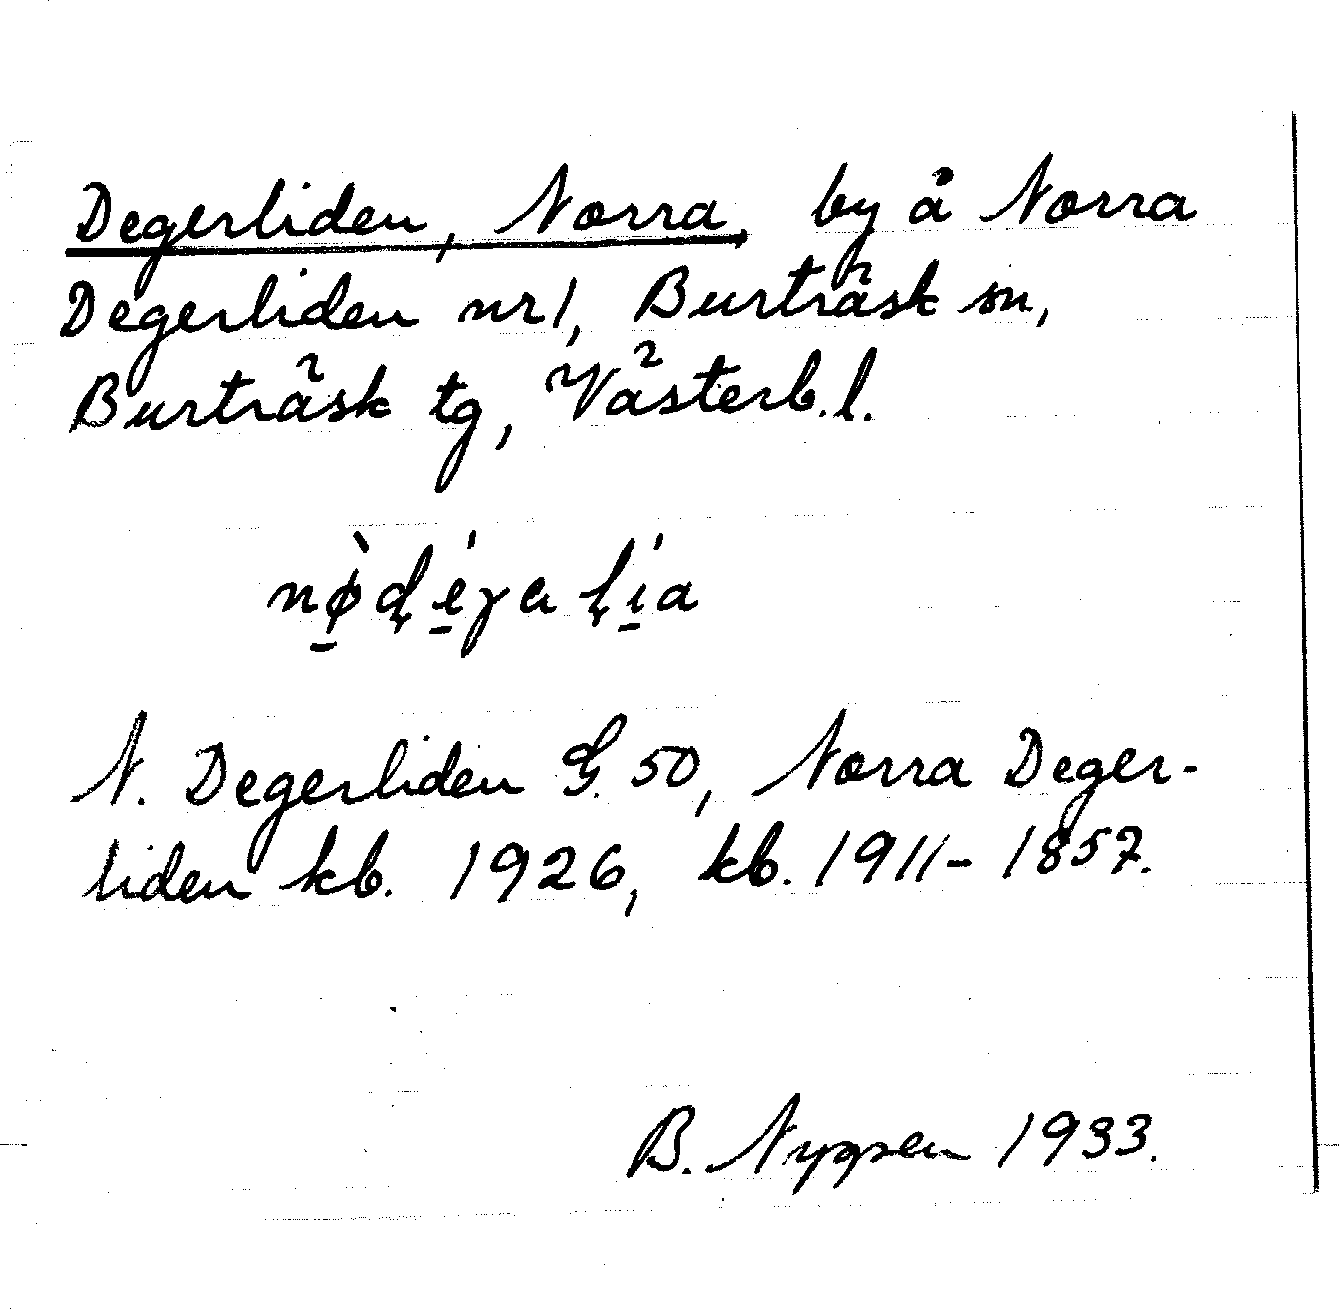 Degerliden, Norra, by å Norra
Degerliden nr 1, Burträsk sn,
Burträsk tg, Västerb.l.
N. Degerliden G. 50, Norra Deger-
liden kb. 1926, kb. 1911-1857.
B. Nyppen 1933.